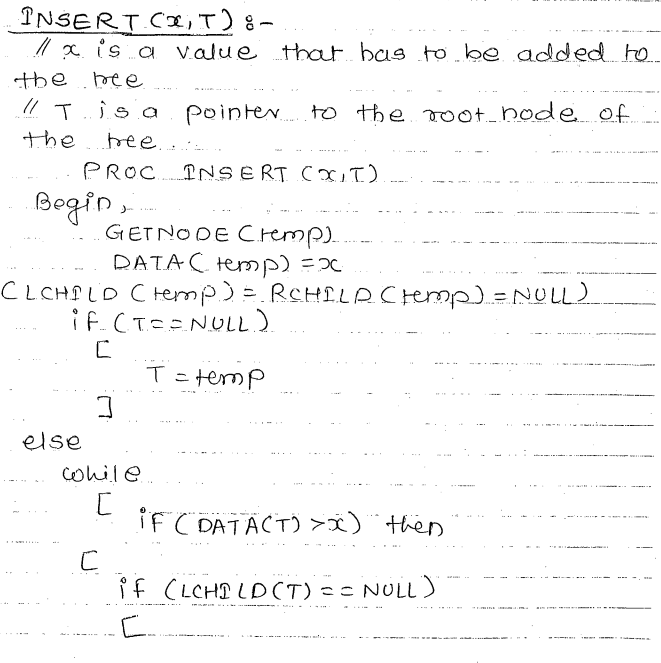 INSERT (x,T) :-
// x is a value that has to be added to
the tree
// T is a pointer to the root node of
the tree.
PROC INSERT (x,T)
Begin,
GETNODE (temp)
DATA (temp) = x
(LCHILD (temp) = RCHILD (temp) = NULL)
if (T==NULL)
[
T = temp
]
else
while
[
if (DATA(T) >x) then
[
if (LCHILD(T) == NULL)
[